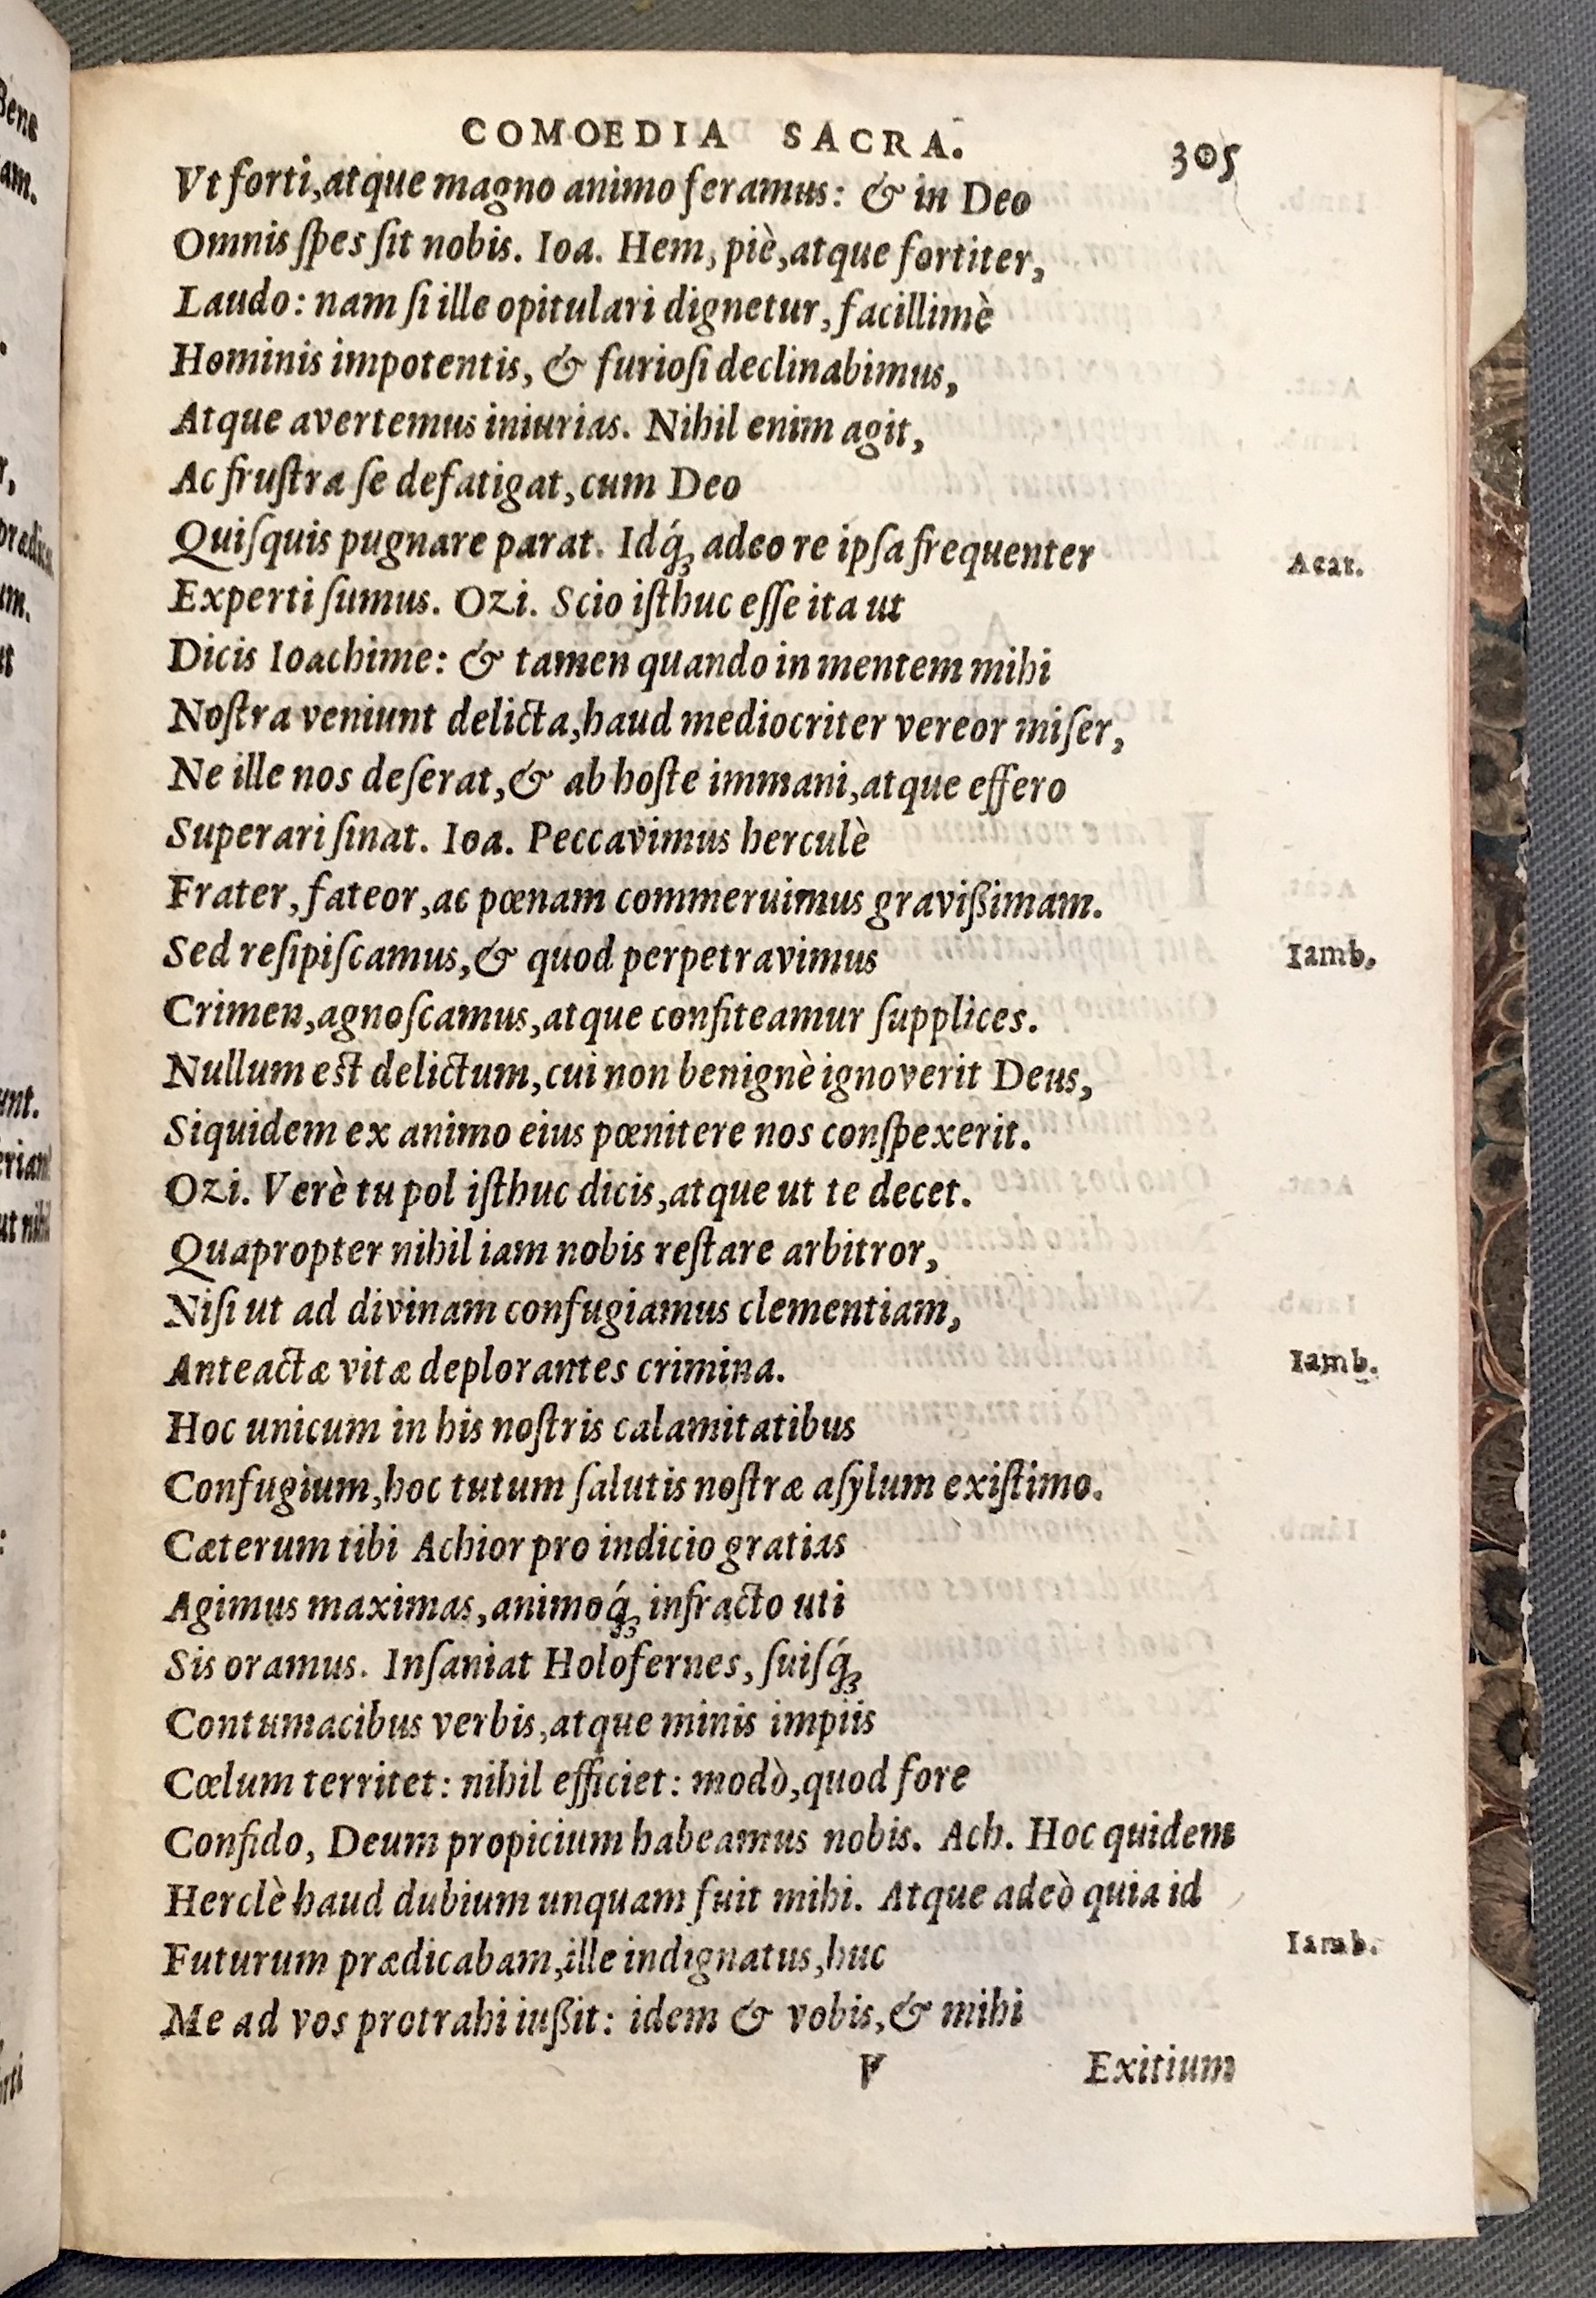 COMOEDIA SACRA. 305
Vt forti,atque magno animo feramus: & in Deo
Omnis ſpes ſit nobis. Ioa. Hem, piè,atque fortiter,
Laudo: nam ſi ille opitulari dignetur, facillimè
Hominis impotentis, & furioſi declinabimus,
Atque avertemus iniurias. Nihil enim agit,
Ac fruſtra ſe defatigat,cum Deo
Quiſquis pugnare parat. Idq́ꝫ adeo re ipſa frequenter Acat.
Experti ſumus. Ozi. Scio iſthuc eſſe ita ut
Dicis Ioachime: & tamen quando in mentem mihi
Noſtra veniunt delicta,haud mediocriter vereor miſer,
Ne ille nos deſerat,& ab hoſte immani,atque effero
Superari ſinat. Ioa. Peccavimus herculè
Frater, fateor,ac pœnam commeruimus gravißimam.
Sed reſipiſcamus,& quod perpetravimus Iamb.
Crimen,agnoſcamus,atque confiteamur ſupplices.
Nullum eſt delictum,cui non benignè ignoverit Deus,
Siquidem ex animo eius pœnitere nos conſpexerit.
Ozi. Verè tu pol iſthuc dicis,atque ut te decet.
Quapropter nihil iam nobis reſtare arbitror,
Niſi ut ad divinam confugiamus clementiam,
Anteactæ vitæ deplorantes crimina. Iamb.
Hoc unicum in his noſtris calamitatibus
Confugium,hoc tutum ſalutis noſtræ aſylum exiſtimo.
Cæterum tibi Achior pro indicio gratias
Agimus maximas,animoq́ꝫ infracto uti
Sis oramus. Inſaniat Holofernes, ſuiſq́ꝫ
Contumacibus verbis,atque minis impiis
Cœlum territet: nihil efficiet: modò,quod fore
Confido, Deum propicium habeamus nobis. Ach. Hoc quidem
Herclè haud dubium unquam fuit mihi. Atque adeò quia id
Futurum prædicabam,ille indignatus,huc Iamb.
Me ad vos protrahi iußit: idem & vobis,& mihi
V Exitium